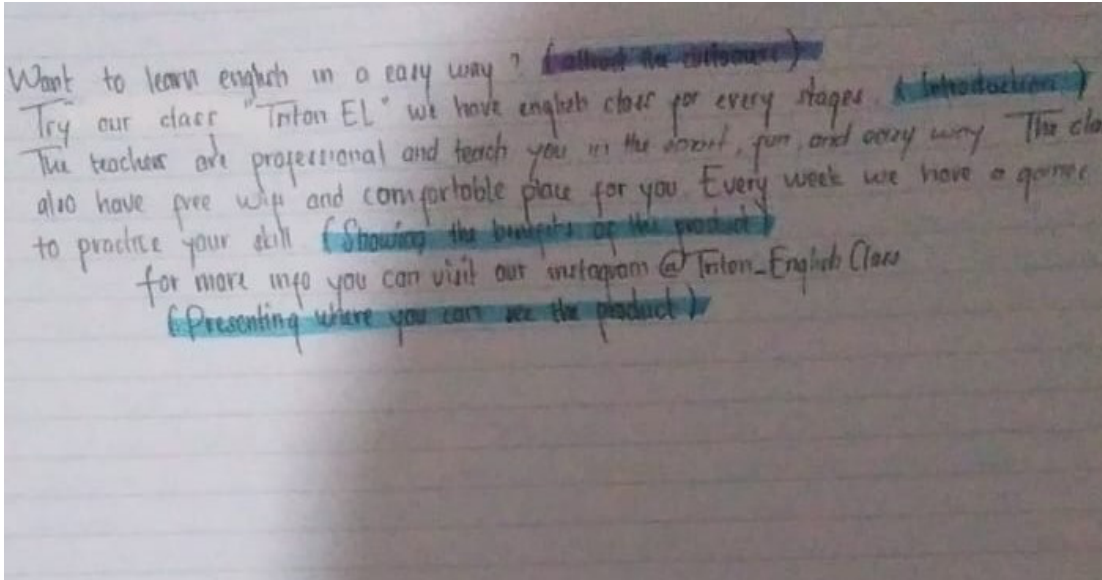 Want to learn english in a easy way ? (attract the customers)
Try our class "Triton EL" we have english class for every stages. (Introduction)
The teachers are professional and teach you in the smart, fun, and easy way. The cla
also have free wifi and comfortable place for you. Every week we have a games
to practice your skill (Showing the benefits of the product)
for more info you can visit our instagram @Triton_English Class
(Presenting where you can see the product)